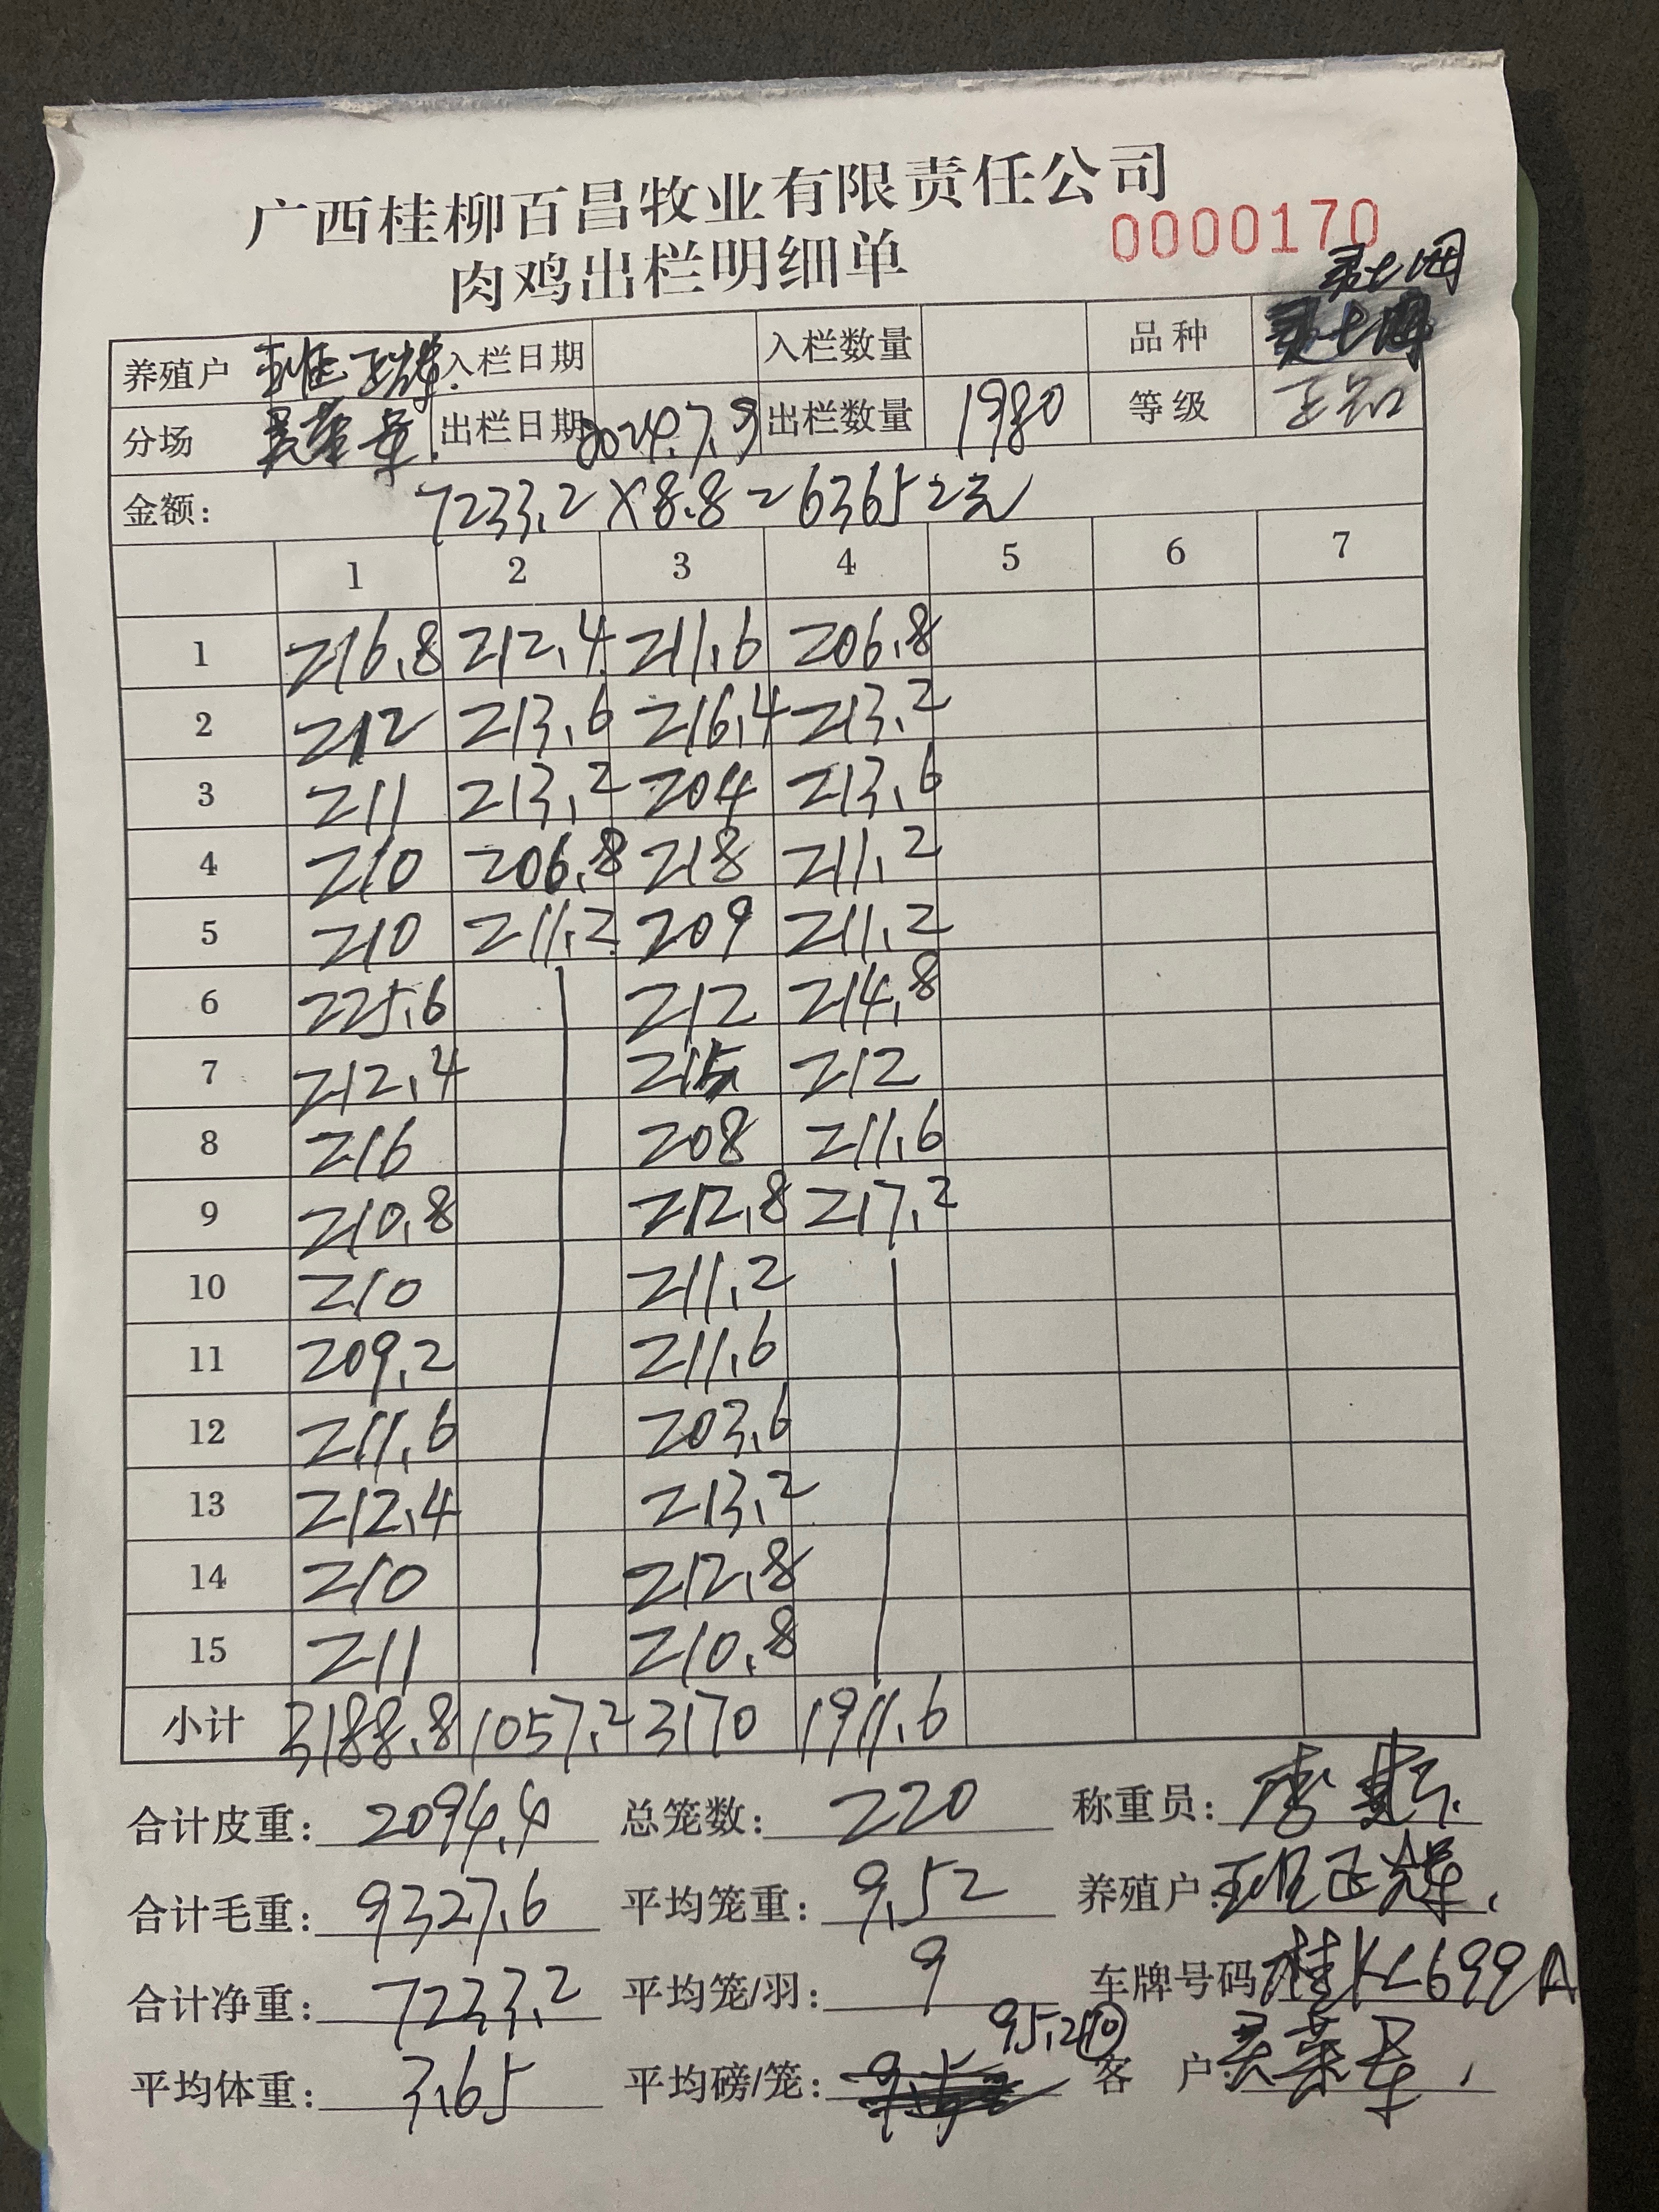 广西桂柳百昌牧业有限责任公司
肉鸡出栏明细单
0000170
养殖户 班正辉. 入栏日期 入栏数量 品种
分场 出栏日期 2024.7.9 出栏数量 1980 等级
金额: 7233.2×8.8=63652元
1 2 3 4 5 6 7
1 216.8 212.4 211.6 206.8
2 212 213.6 216.4 213.2
3 211 213.2 204 213.6
4 210 206.8 218 211.2
5 210 211.2 209 211.2
6 225.6 212 214.8
7 212.4 215 212
8 216 208 211.6
9 210.8 212.8 217.2
10 210 211.2
11 209.2 211.6
12 211.6 203.6
13 212.4 213.2
14 210 212.8
15 211 210.8
小计 3188.8 1057.2 3170 1911.6
合计皮重: 2094.4 总笼数: 220 称重员:
合计毛重: 9327.6 平均笼重: 9.52 养殖户: 班正辉.
合计净重: 7233.2 平均笼/羽: 9 车牌号码 桂KL699A
平均体重: 3.65 平均磅/笼: 95.2 客 户